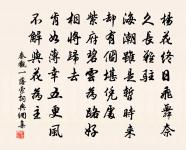 楊花終日飛舞奈
久長難駐
海潮雖是暫時來
卻有個堪憑處
紫府碧雲為路好
相將歸去
肯如薄幸五更風
不解與花為主
秦觀一落索詞